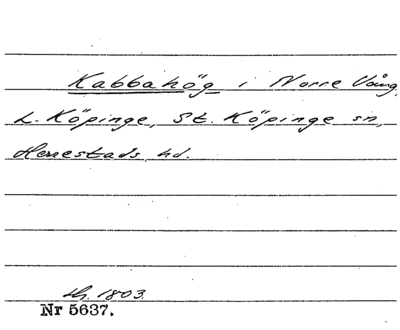 Kabbahög i Norre Vång,
L. Köpinge, St. Köpinge sn,
Herrestads hd.
1803.
Nr 5637.